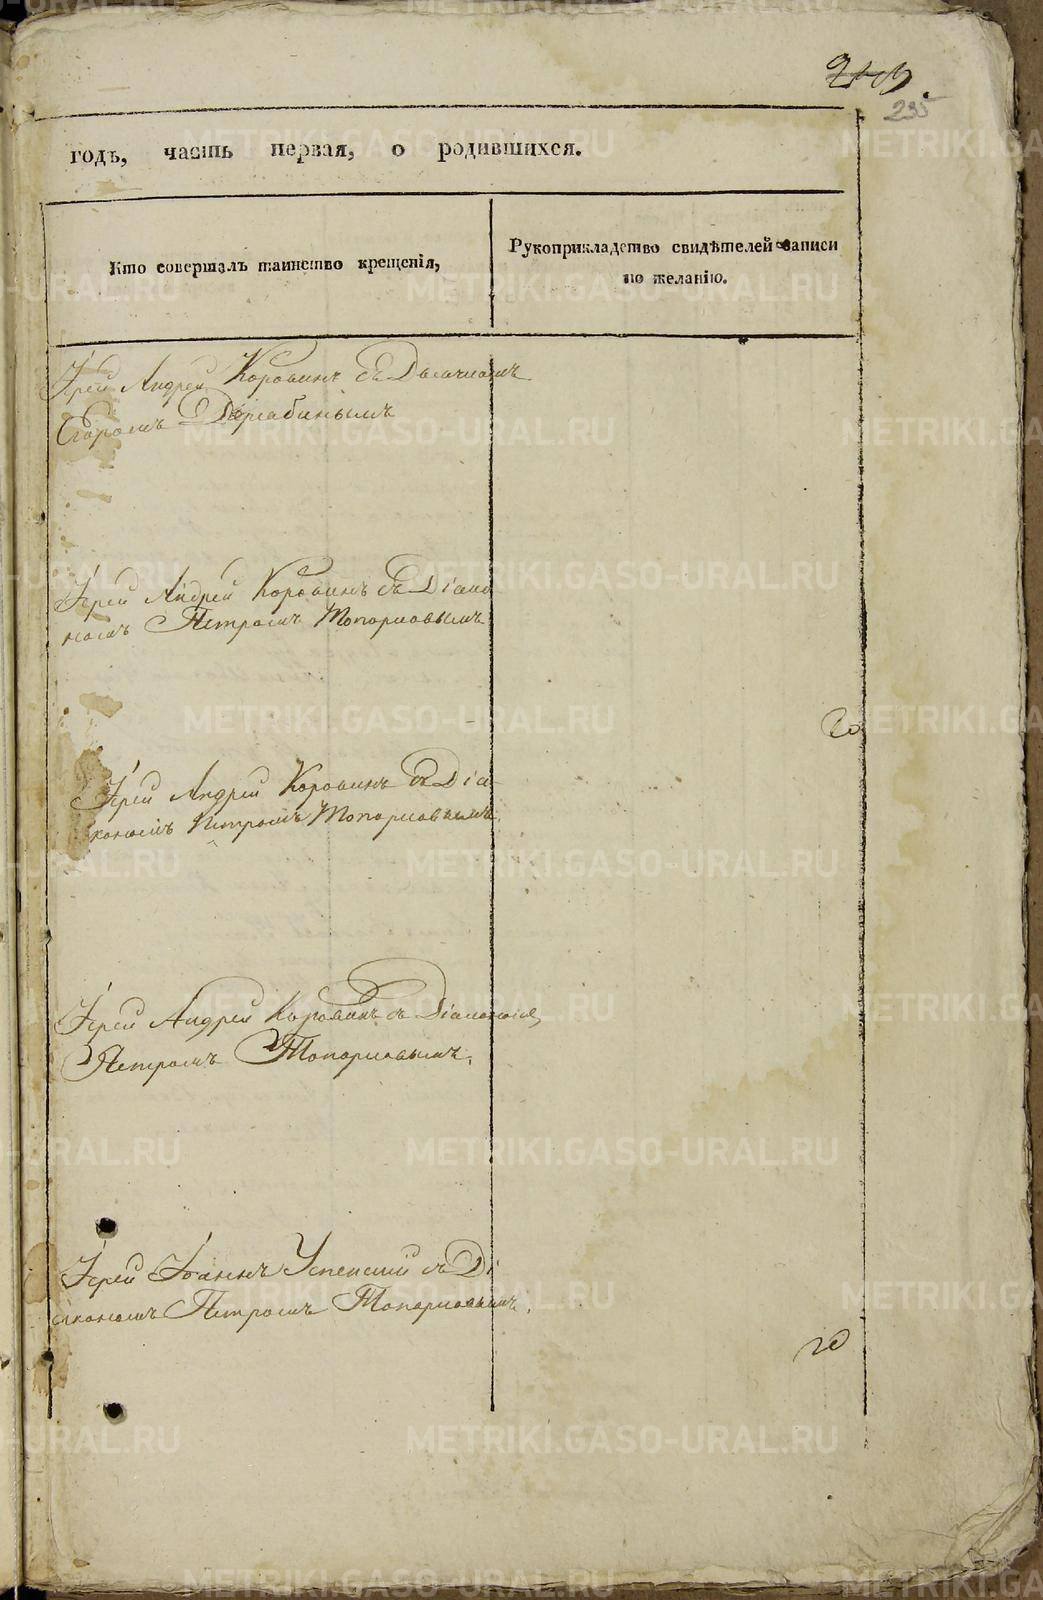 235
годъ, часть первая, о родившихся.
Кто совершалъ таинство крещенія,
Рукоприкладство свидѣтелей записи
по желанію.
Іерей Андрей Коровинъ съ Дьячкомъ
Егоромъ Дерябинымъ
Іерей Андрей Коровинъ съ Діако
номъ Петромъ Топорковымъ
Іерей Андрей Коровинъ съ Діа
кономъ Петромъ Топорковымъ.
Іерей Андрей Коровинъ съ Діакономъ
Петромъ Топорковымъ.
Іерей Іоаннъ Успенскій съ Ді
акономъ Петромъ Топорковымъ.
METRIKI.GASO-URAL.RU